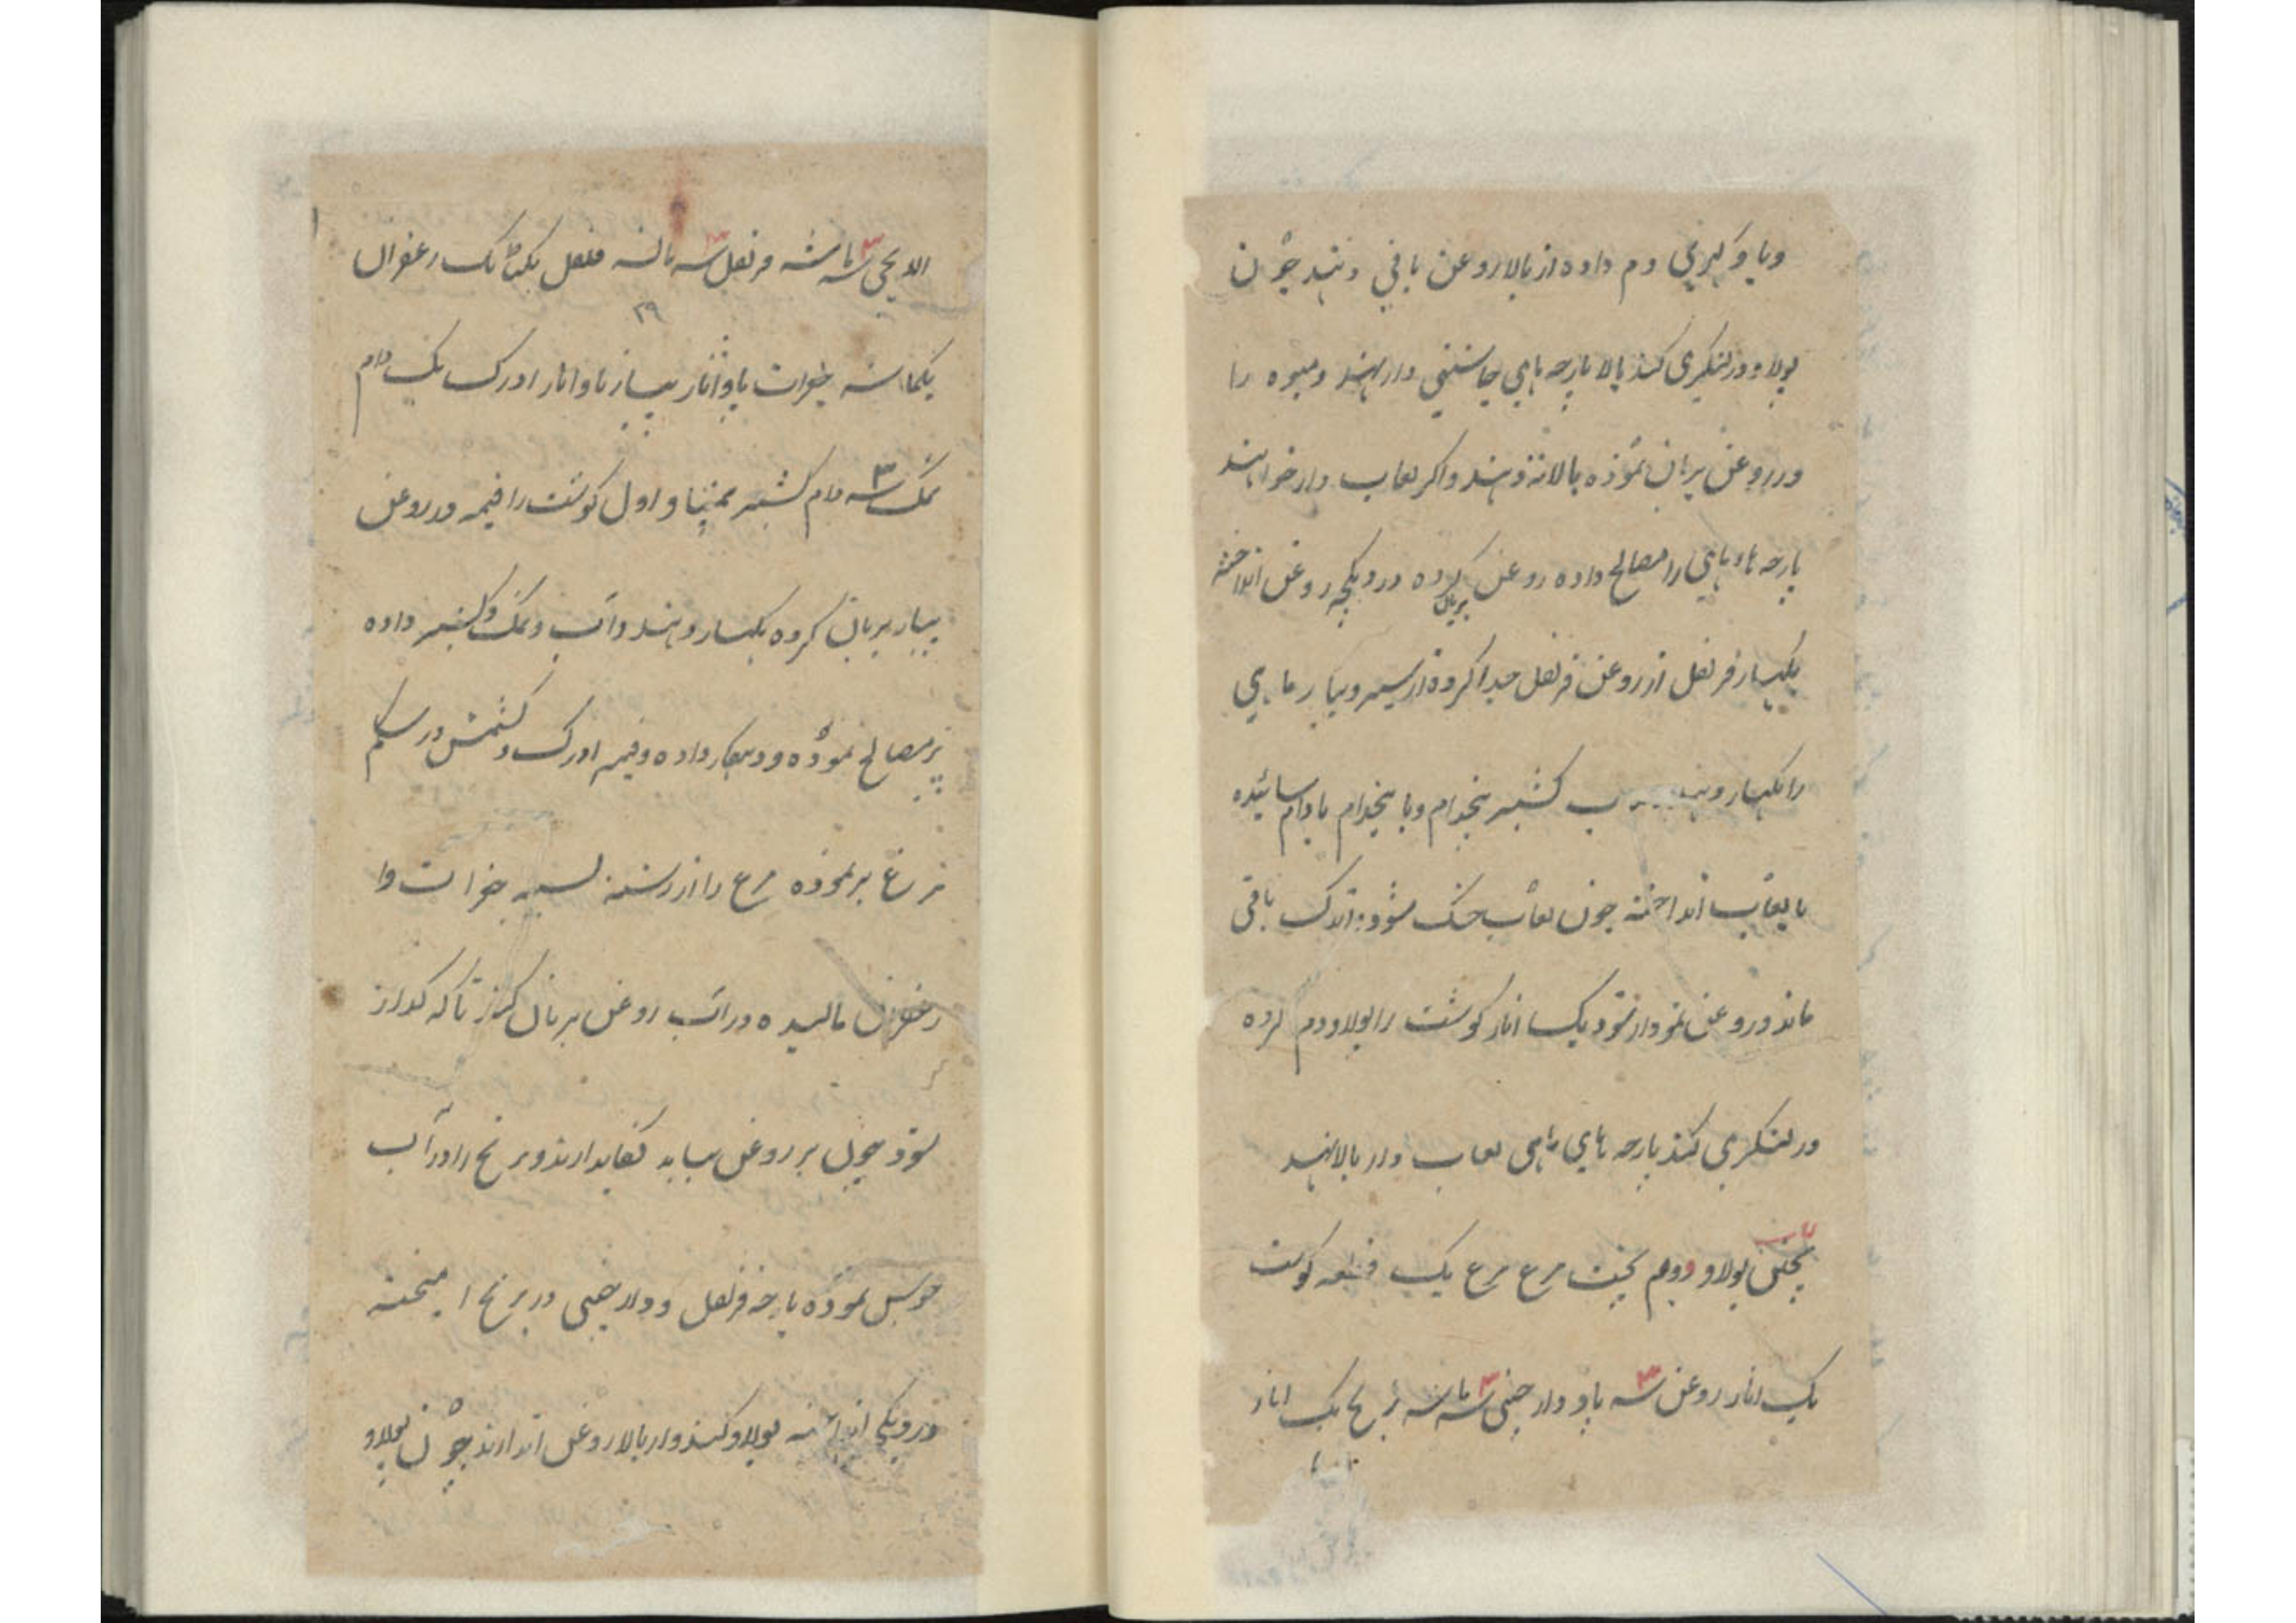 و یا و کهربی دم داده از بالا روغن باقی دهند چون
پولاو در لنکری کنند بالا پارچه های چاشنی دار نهند و میوه را
در روغن بریان نموده بالا نه دهند و اکر لعاب دار خواهند
پارچه های را مصالح داده روغن بریان کرده در دیکچه روغن انداخته
بکهار قرنفل از روغن قرنفل جدا کرده از سیر و پیاز ماهی
را بکهار دهند کشنیز پنجدام و با پنجدام بادام سائیده
با لعاب انداخته چون لعاب خشک شود اندک باقی
ماند در روغن نمودار شود یک اثار کوشت را پولاو دم کرده
در لنکری کنند پارچه های ماهی لعاب دار بالا نهند
پختن پولاو دویم پخت مرغ مرغ یک قطعه کوشت
یک اثار روغن سه ۳ پاو دارچینی سه ۳ ماشه برنج یک اثار
الایچی سه ۳ ماشه قرنفل سه ۳ ماشه فلفل یکتانک زعفران
۲۹
یکماشه جغرات پاو اثار پیاز پاو اثار ادرک یک دام
نمک سه ۳ دام کشنیز اول کوشت را قیمه در روغن
پیاز بریان کرده بکهار دهند و آب و نمک و کشنیز داده
پز مصالح نموده و دو بکهار داده و قیمه ادرک و کشمش در شکم
مرغ پر نموده مرغ را از رشته بسته جغرات و
زعفران مالیده در آب روغن بریان کنند تا که کداز
شود چون بر روغن بیاید نکاهدارند و برنج را در آب
جوش نموده پارچه قرنفل و دارچینی در برنج امیخته
در دیکی انداخته پولاو کنند و از بالا روغن اندازند چون پولاو